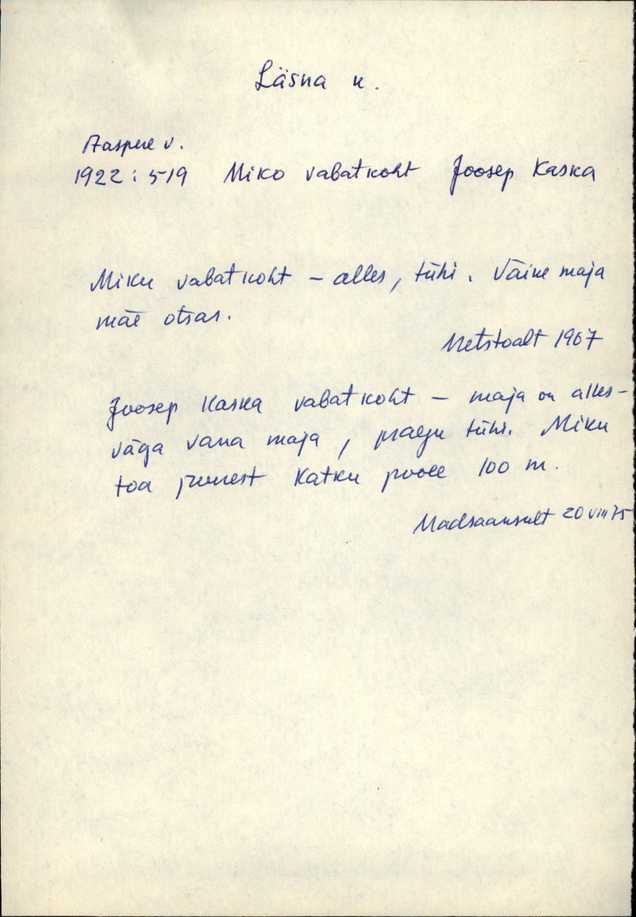 Läsna k.
Aaspere v.
1922: 519 Miko vabatkoht Joosep Kaska
Miku vabatkoht – alles, tühi. Väike maja
mäe otsas.
Metstoalt 1967
Joosep Kaska vabatkoht – maja on alles –
väga vana maja, praegu tühi. Miku
toa juurest Katku poole 100 m.
Madsaansult 20 VIII 75